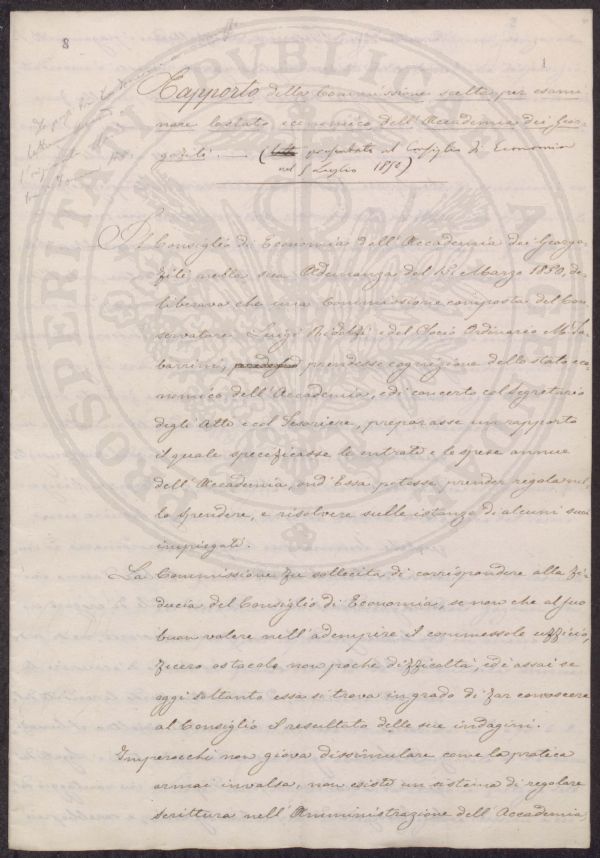 8
1
Rapporto della Commissione scelta per esami-
nare lo stato economico dell'Accademia dei Geor-
gofili. — (letto presentato al Consiglio di Economia
nel 5 Luglio 1850)
Il Consiglio di Economia dell'Accademia dei Georgo-
fili nella sua Adunanza del 15 Marzo 1850, de-
liberava che una Commissione composta del Con-
servatore Luigi Ridolfi e del Socio Ordinario M. Ta-
barrini, prendesse cognizione dello stato eco-
nomico dell'Accademia, e di concerto col Segretario
degli Atti e col Tesoriere, preparasse un rapporto
il quale specificasse le entrate e le spese annue
dell'Accademia, ond'Essa potesse prender regola nel-
lo spendere, e risolvere sulle istanze di alcuni suoi
impiegati.
La Commissione fu sollecita di corrispondere alla fi-
ducia del Consiglio di Economia, se non che al suo
buon volere nell'adempire il commessole uffizio,
fecero ostacolo non poche difficoltà, ed è assai se
oggi soltanto essa si trova in grado di far conoscere
al Consiglio il resultato delle sue indagini.
Imperocchè non giova dissimulare come la pratica
ormai invalsa, non esiste un sistema di regolare
scrittura nell'Amministrazione dell'Accademia
PROSPERITATI PUBLICAE AUGENDAE